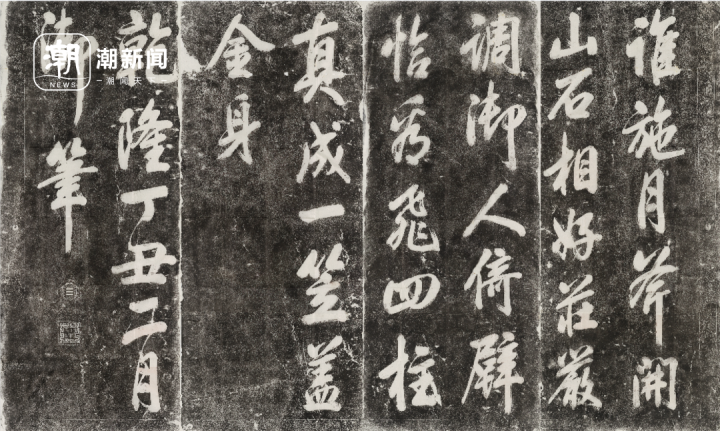 誰施月斧開
山石相好莊嚴
調御人倚壁
恰為飛四柱
真成一笠蓋
金身
乾隆丁丑二月
御筆
潮
NEWS
潮新闻